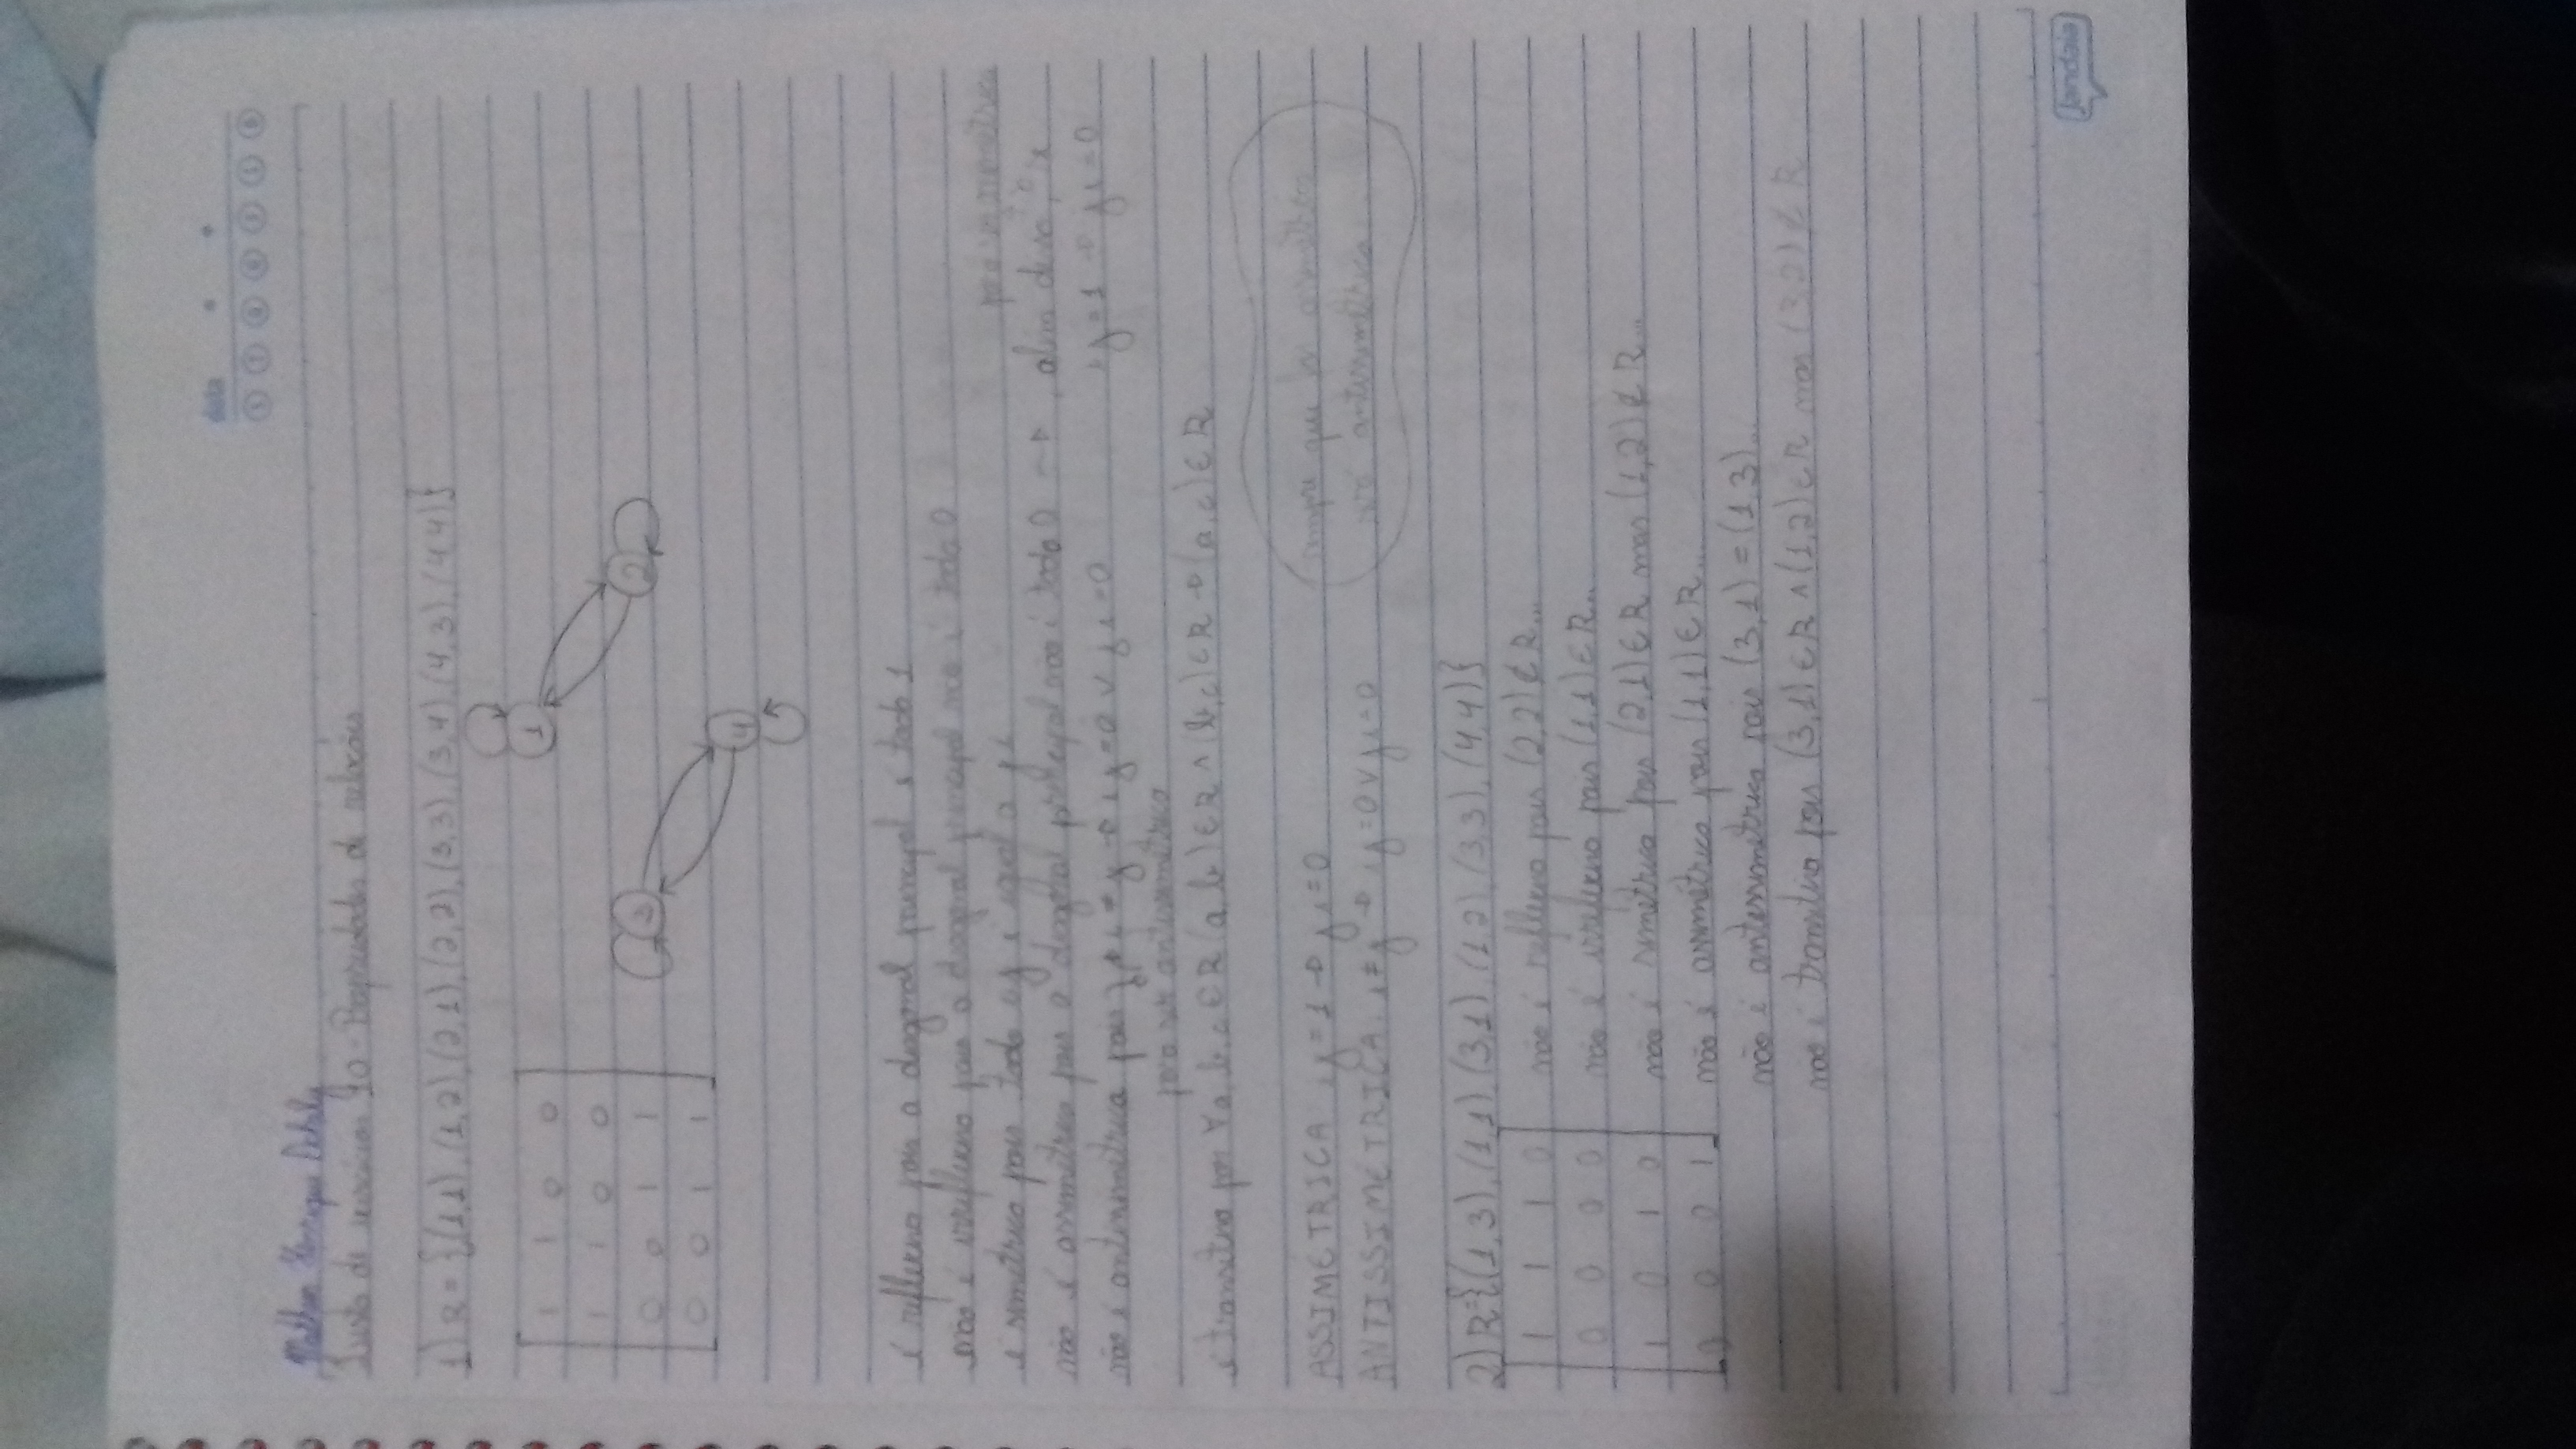 data
Henrique
Lista de exercícios 10 - Propriedades de relações
1) R = {(1,1), (1,2), (2,1), (2,2), (3,3), (3,4), (4,3), (4,4)}
1 1 0 0
1 1 0 0
0 0 1 1
0 0 1 1
1
2
3
4
é reflexiva pois a diagonal principal é todo 1
não é irreflexiva pois a diagonal principal não é todo 0
é simétrica pois todo ij é igual a ji
não é assimétrica pois a diagonal principal não é todo 0 → , além disso,
para ser assimétrica
ij=1 → ji=0
não é antissimétrica pois i≠j → ij=0 v ji=0
para ser antissimétrica
é transitiva pois ∀a, b, c ∈ R (a,b) ∈ R ∧ (b,c) ∈ R → (a,c) ∈ R
ASSIMETRICA: ij=1 → ji=0
ANTISSIMETRICA: i≠j → ij=0 v ji=0
sempre que for assimétrica
será antissimétrica
2) R={(1,3), (1,1), (3,1), (1,2), (3,3), (4,4)}
1 1 1 0
0 0 0 0
1 0 1 0
0 0 0 1
não é reflexiva pois (2,2) ∉ R...
não é irreflexiva pois (1,1) ∈ R...
não é simétrica pois (2,1) ∈ R mas (1,2) ∉ R...
não é assimétrica pois (1,1) ∈ R...
não é antissimétrica pois (3,1) = (1,3)...
não é transitiva pois (3,1) ∈ R ∧ (1,2) ∈ R mas (3,2) ∉ R
Jandaia